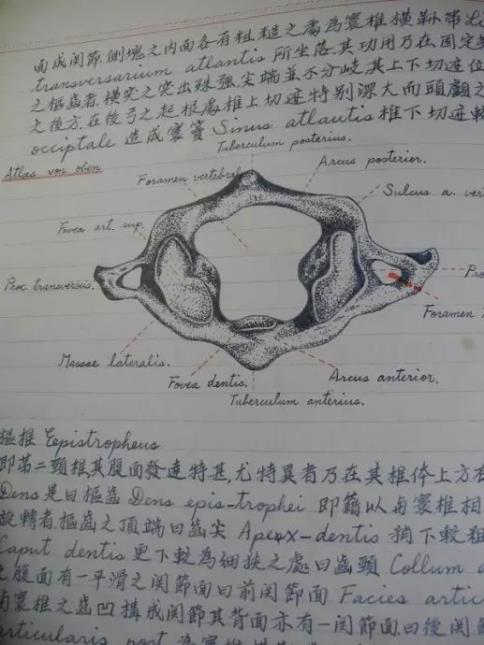 面成関節,側塊之内面各有粗糙之處為寰椎横靱帶
transversarium atlantis 所坐落,其功用乃在固定
之樞齒,橫突之突出殊強,尖端並不分岐,其上下切迹位
之後方,在後弓之起根處,椎上切迹特别深大而頭顱之
occiptale 造成寰竇 Sinus atlautis 椎下切迹
Tuberculum posterius.
Atlas von oben
Arcus posterior.
Foramen vertebral
Sulcus a. ver
Fovea art. sup.
Proc. transversus.
Foramen
Massae lateralis.
Fovea dentis.
Arcus anterior.
Tuberculum anterius.
樞椎 Epistropheus
即第二頸椎,其腹面發達特甚,尤特異者乃在其椎体上方有
Dens 是曰樞齒 Dens epis-trophei 即籍以与寰椎相
旋轉者,樞齒之頂端曰齒尖 Apex-dentis 稍下較粗
Caput dentis 更下較為细狭之處曰齒頸 Collum
腹面有一平滑之関節面曰前関節面 Facies artic
寰椎之齒凹構成関節其背面亦有一関節面,曰後関節
articularis post